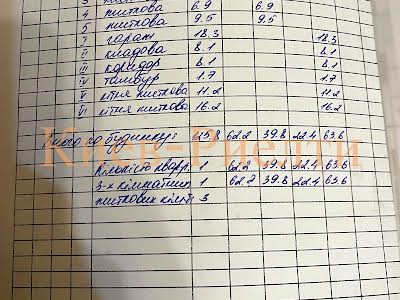 4 житлова 6.9 6.9
5 житлова 9.5 9.5
I гараж 18.3 18.3
II кладова 8.1 8.1
III коридор 8.1 8.1
IV тамбур 1.7 1.7
V літня житлова 11.2 11.2
VI літня житлова 16.2 16.2
Всього по будинку: 125.8 62.2 39.8 22.4 63.6
Кількість кварт. 1 62.2 39.8 22.4 63.6
3-х кімнатних 1 62.2 39.8 22.4 63.6
житлових кімн 3
Киев-Риелти